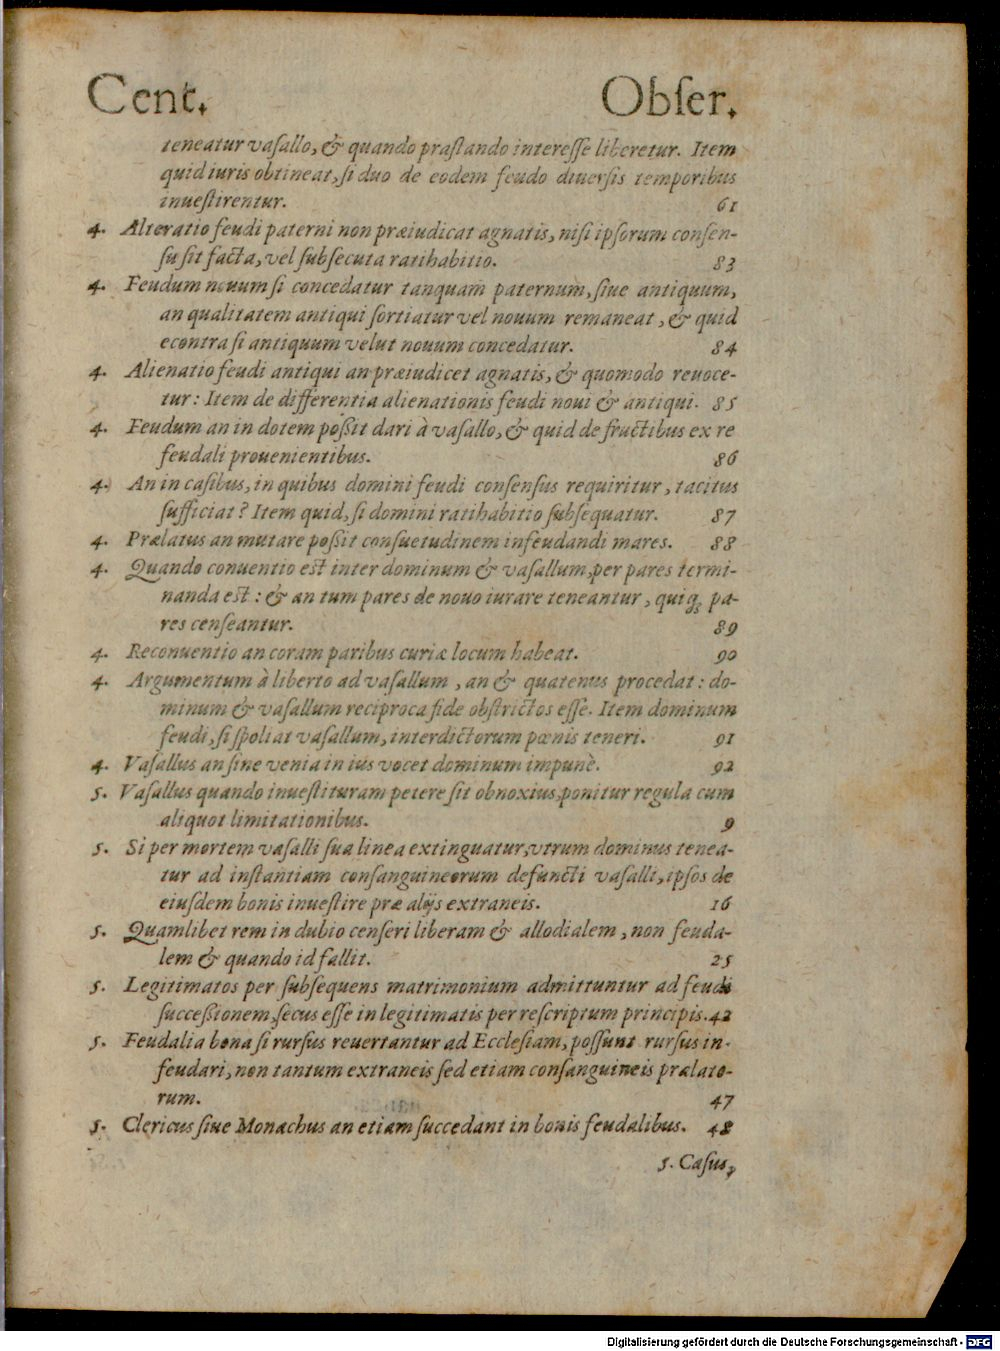 Cent. Obſer.
teneatur vaſallo, & quando præſtando intereſſe liberetur. Item
quid iuris obtineat, ſi duo de eodem feudo diuerſis temporibus
inueſtirentur. 61
4. Alteratio feudi paterni non præiudicat agnatis, niſi ipſorum conſen-
ſu ſit facta, vel ſubſecuta ratihabitio. 83
4. Feudum nouum ſi concedatur tanquam paternum, ſiue antiquum,
an qualitatem antiqui ſortiatur vel nouum remaneat, & quid
econtra ſi antiquum velut nouum concedatur. 84
4. Alienatio feudi antiqui an præiudicet agnatis, & quomodo reuoce-
tur: Item de differentia alienationis feudi noui & antiqui. 85
4. Feudum an in dotem poßit dari à vaſallo, & quid de fructibus ex re
feudali prouenientibus. 86
4. An in caſibus, in quibus domini feudi conſenſus requiritur, tacitus
ſufficiat? Item quid, ſi domini ratihabitio ſubſequatur. 87
4. Prælatus an mutare poßit conſuetudinem infeudandi mares. 88
4. Quando conuentio eſt inter dominum & vaſallum, per pares termi-
nanda eſt: & an tum pares de nouo iurare teneantur, quiq; pa-
res cenſeantur. 89
4. Reconuentio an coram paribus curiæ locum habeat. 90
4. Argumentum à liberto ad vaſallum, an & quatenus procedat: do-
minum & vaſallum reciproca fide obſtrictos eſſe. Item dominum
feudi, ſi ſpoliat vaſallum, interdictorum pœnis teneri. 91
4. Vaſallus an ſine venia in ius vocet dominum impunè. 92
5. Vaſallus quando inueſtituram petere ſit obnoxius, ponitur regula cum
aliquot limitationibus. 9
5. Si per mortem vaſalli ſua linea extinguatur, vtrum dominus tenea-
tur ad inſtantiam conſanguineorum defuncti vaſalli, ipſos de
eiuſdem bonis inueſtire præ alijs extraneis. 16
5. Quamlibet rem in dubio cenſeri liberam & allodialem, non feuda-
lem & quando id fallit. 25
5. Legitimatos per ſubſequens matrimonium admittuntur ad feudi
ſucceßionem, ſecus eſſe in legitimatis per reſcriptum principis. 42
5. Feudalia bona ſi rurſus reuertantur ad Eccleſiam, poſſunt rurſus in-
feudari, non tantum extraneis ſed etiam conſanguineis prælato-
rum. 47
5. Clericus ſiue Monachus an etiam ſuccedant in bonis feudalibus. 48
5. Caſus,
Digitalisierung gefördert durch die Deutsche Forschungsgemeinschaft - DFG